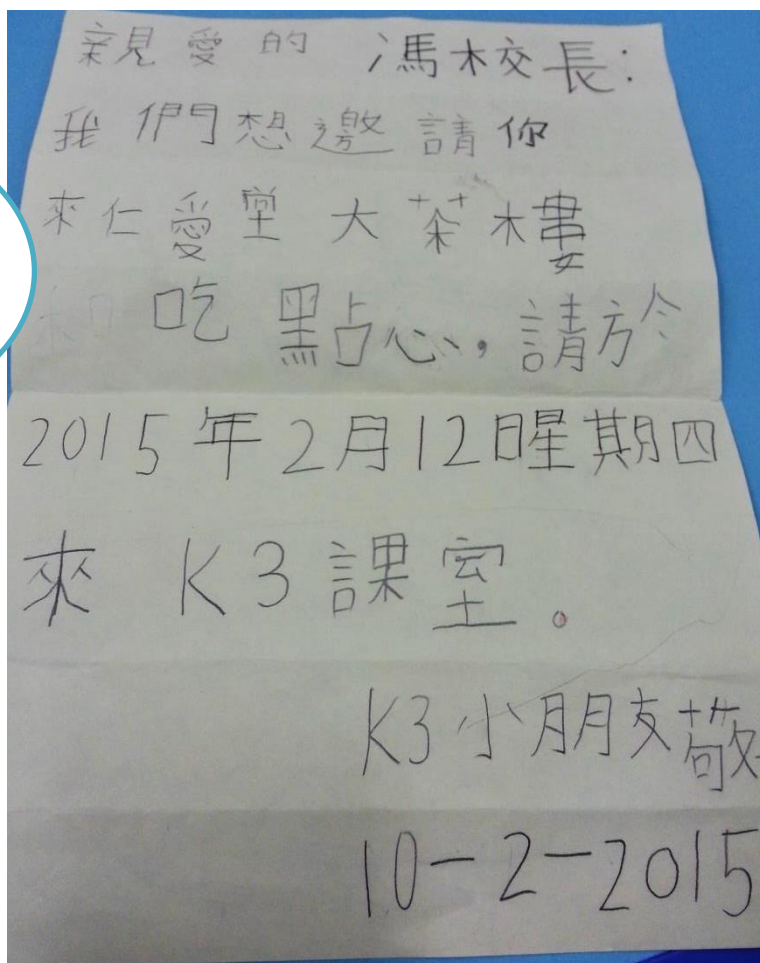 親愛的 馮校長：
我們想邀請你
來仁愛堂大茶樓
吃點心，請於
2015年2月12日星期四
來 K3課室。
K3小朋友敬
10-2-2015